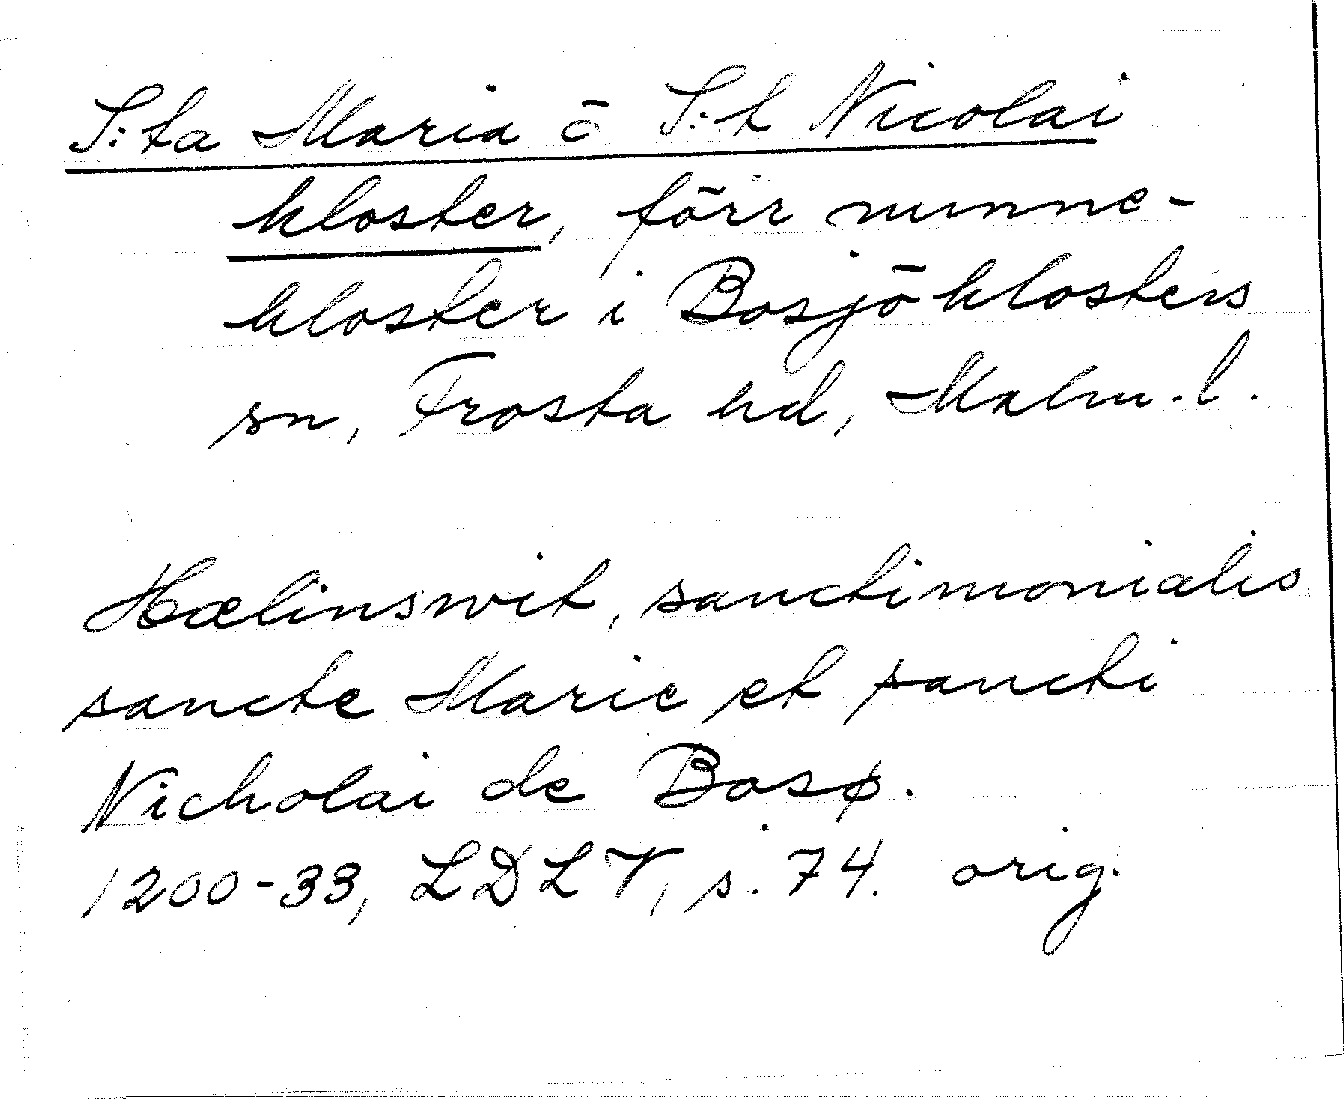 S:ta Maria ō S:t Nicolai
kloster, förr nunne-
kloster i Bosjöklosters
sn, Frosta hd, Malm. l.
Hælinswit, sanctimonialis
sancte Marie et sancti
Nicholai de Bosø.
1200-33, LDLV, s. 74. orig.